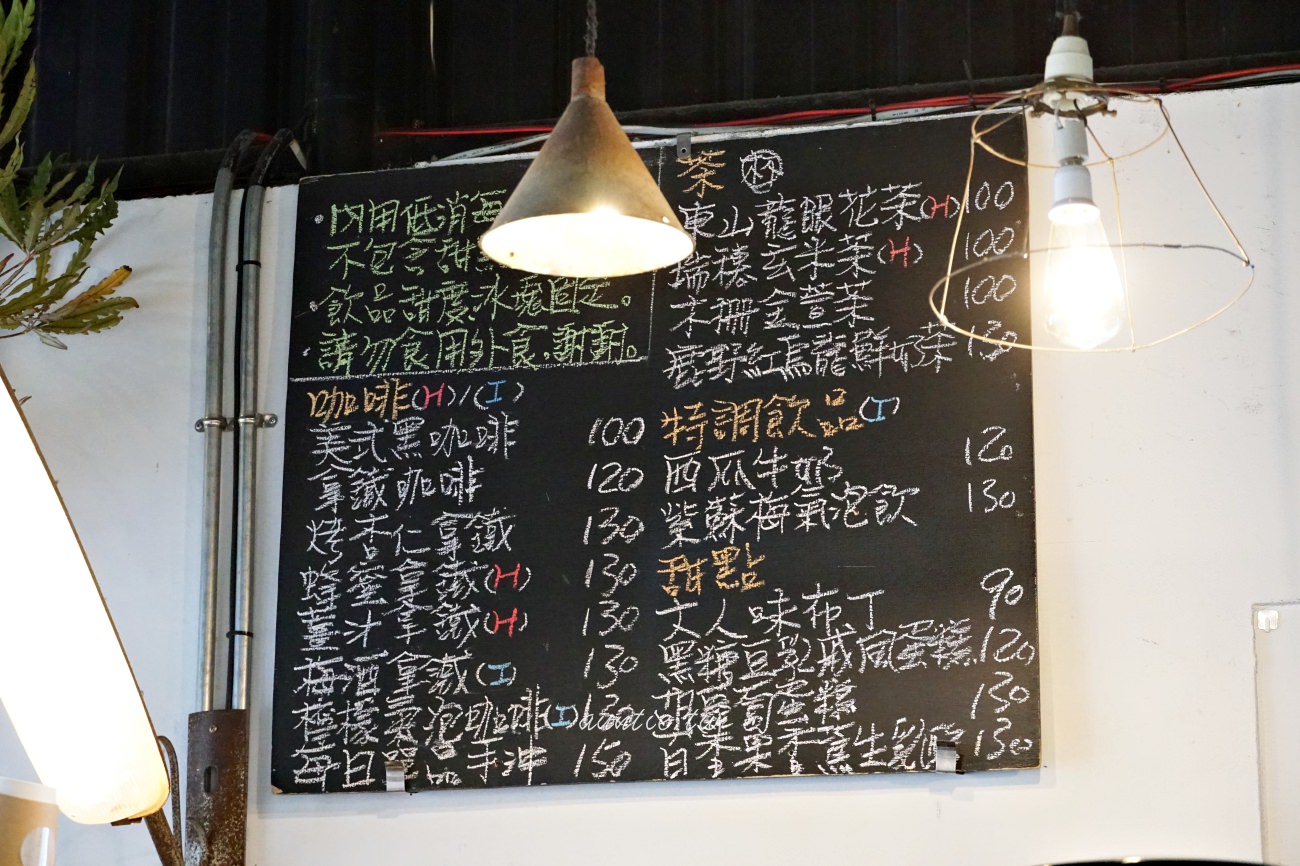 ・內用低消每
不包含甜
・飲品甜度冰塊固定。
・請勿食用外食,謝謝。
咖啡(H)/(I)
美式黑咖啡 100
拿鐵咖啡 120
烤杏仁拿鐵 130
蜂蜜拿鐵(H) 130
薑汁拿鐵(H) 130
梅酒拿鐵(I) 130
檸檬氣泡咖啡(I) 130
每日單品手沖 150
茶 杯
東山龍眼花茶(H) 100
瑞穗玄米茶(H) 100
木柵金萱茶 100
鹿野紅烏龍鮮奶茶 130
特調飲品(I)
西瓜牛奶 120
紫蘇梅氣泡飲 130
甜點
文人味布丁 90
黑糖豆乳戚風蛋糕 120
胡蘿蔔蛋糕 130
日本果香蕉生乳酪 130